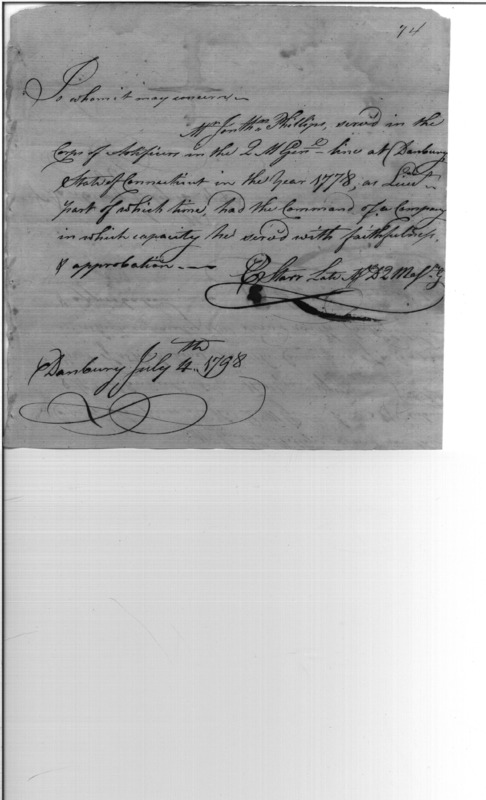 74
To whom it may concern
Mr Jontha Phillips, serv'd in the
Corps of Artificers in the Q. M Genls line at Danbury
State of Connecticut in the Year 1778, as Lieut
part of which time, had the Command of a Company
in which capacity he serv'd with faithfulness,
& approbation
E Starr Late D Q
Danbury July 4th 1798